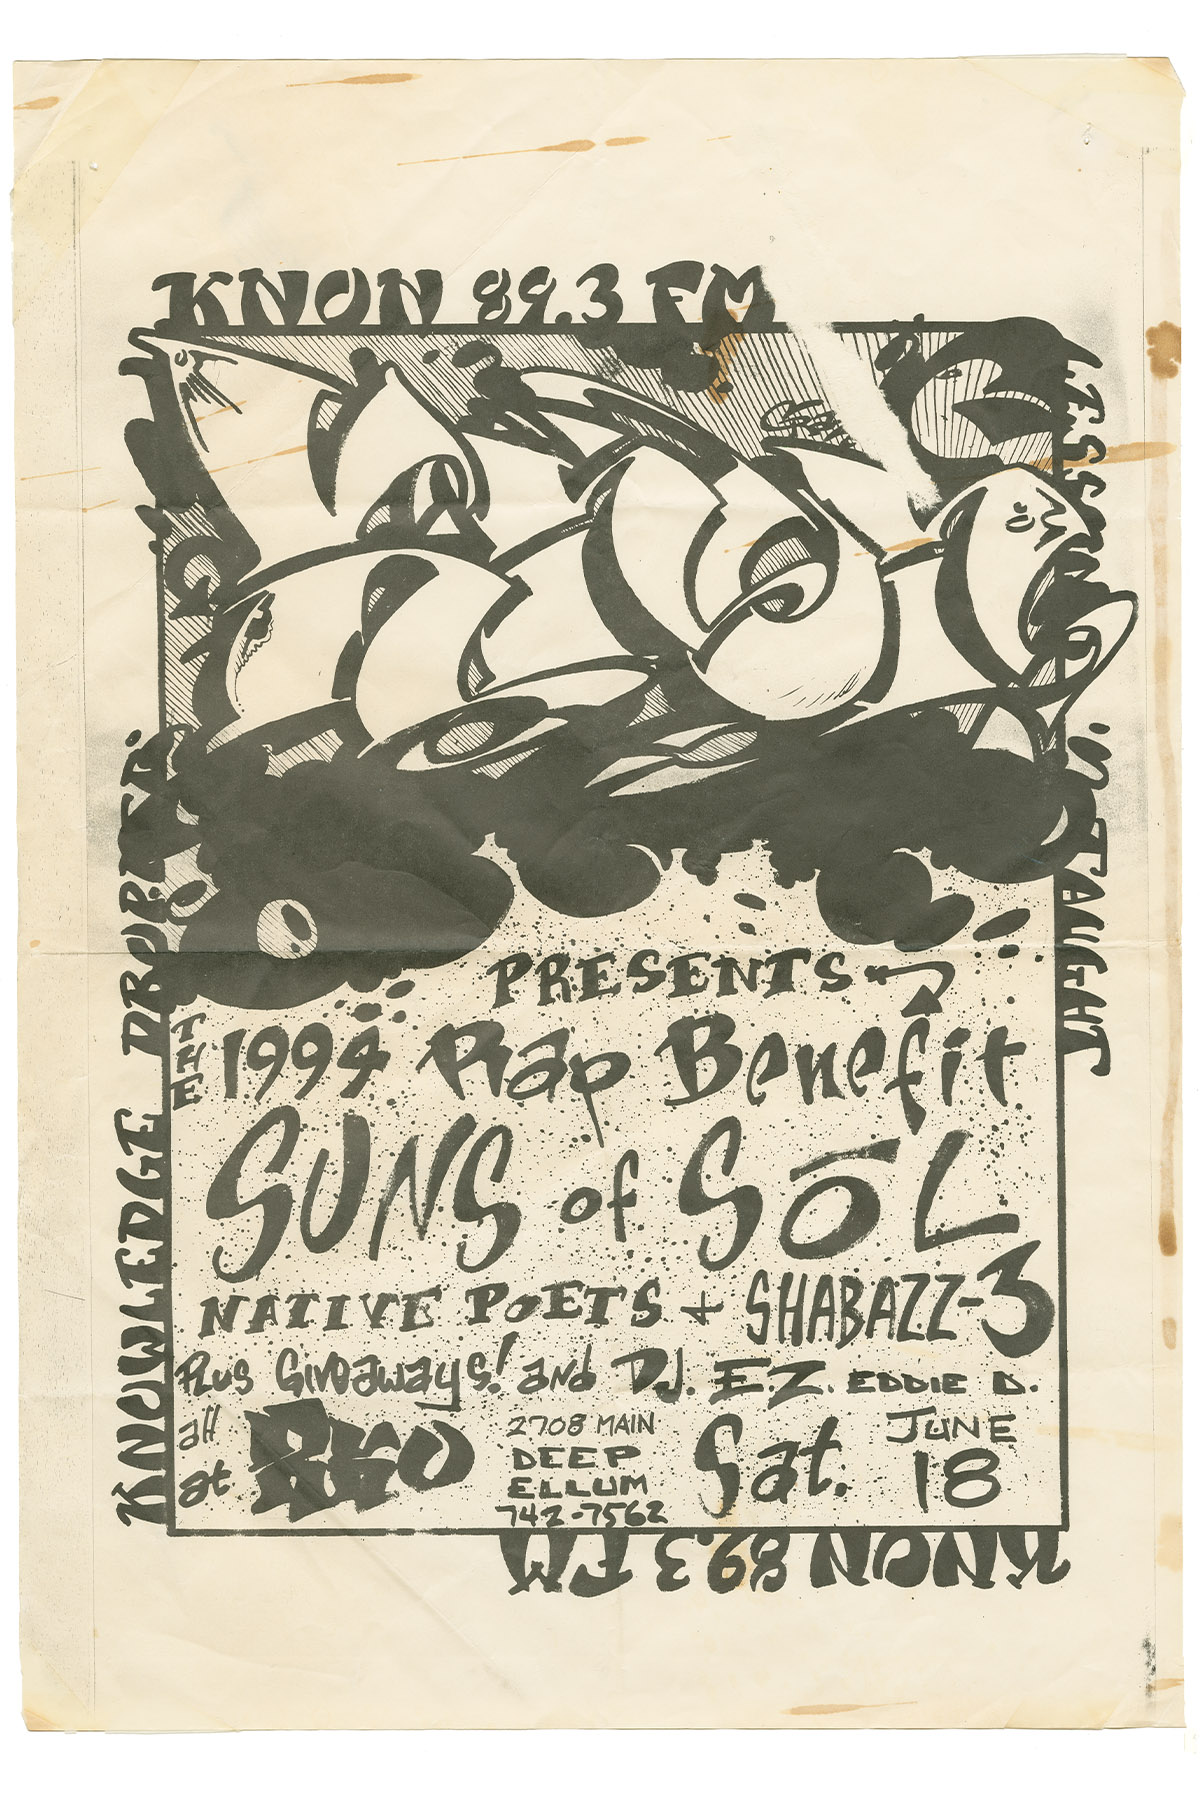 KNON 89.3 FM
KNOWLEDGE DROPPED.
LISSONS
in TAUGHT
PRESENTS
THE 1994 Rap Benefit
SUNS of SōL
NATIVE POETS + SHABAZZ-3
Plus Giveaways! and DJ. EZ EDDIE D.
all at RKO
2708 MAIN
DEEP
ELLUM
742-7562
Sat. JUNE
18
KNON 89.3 FM